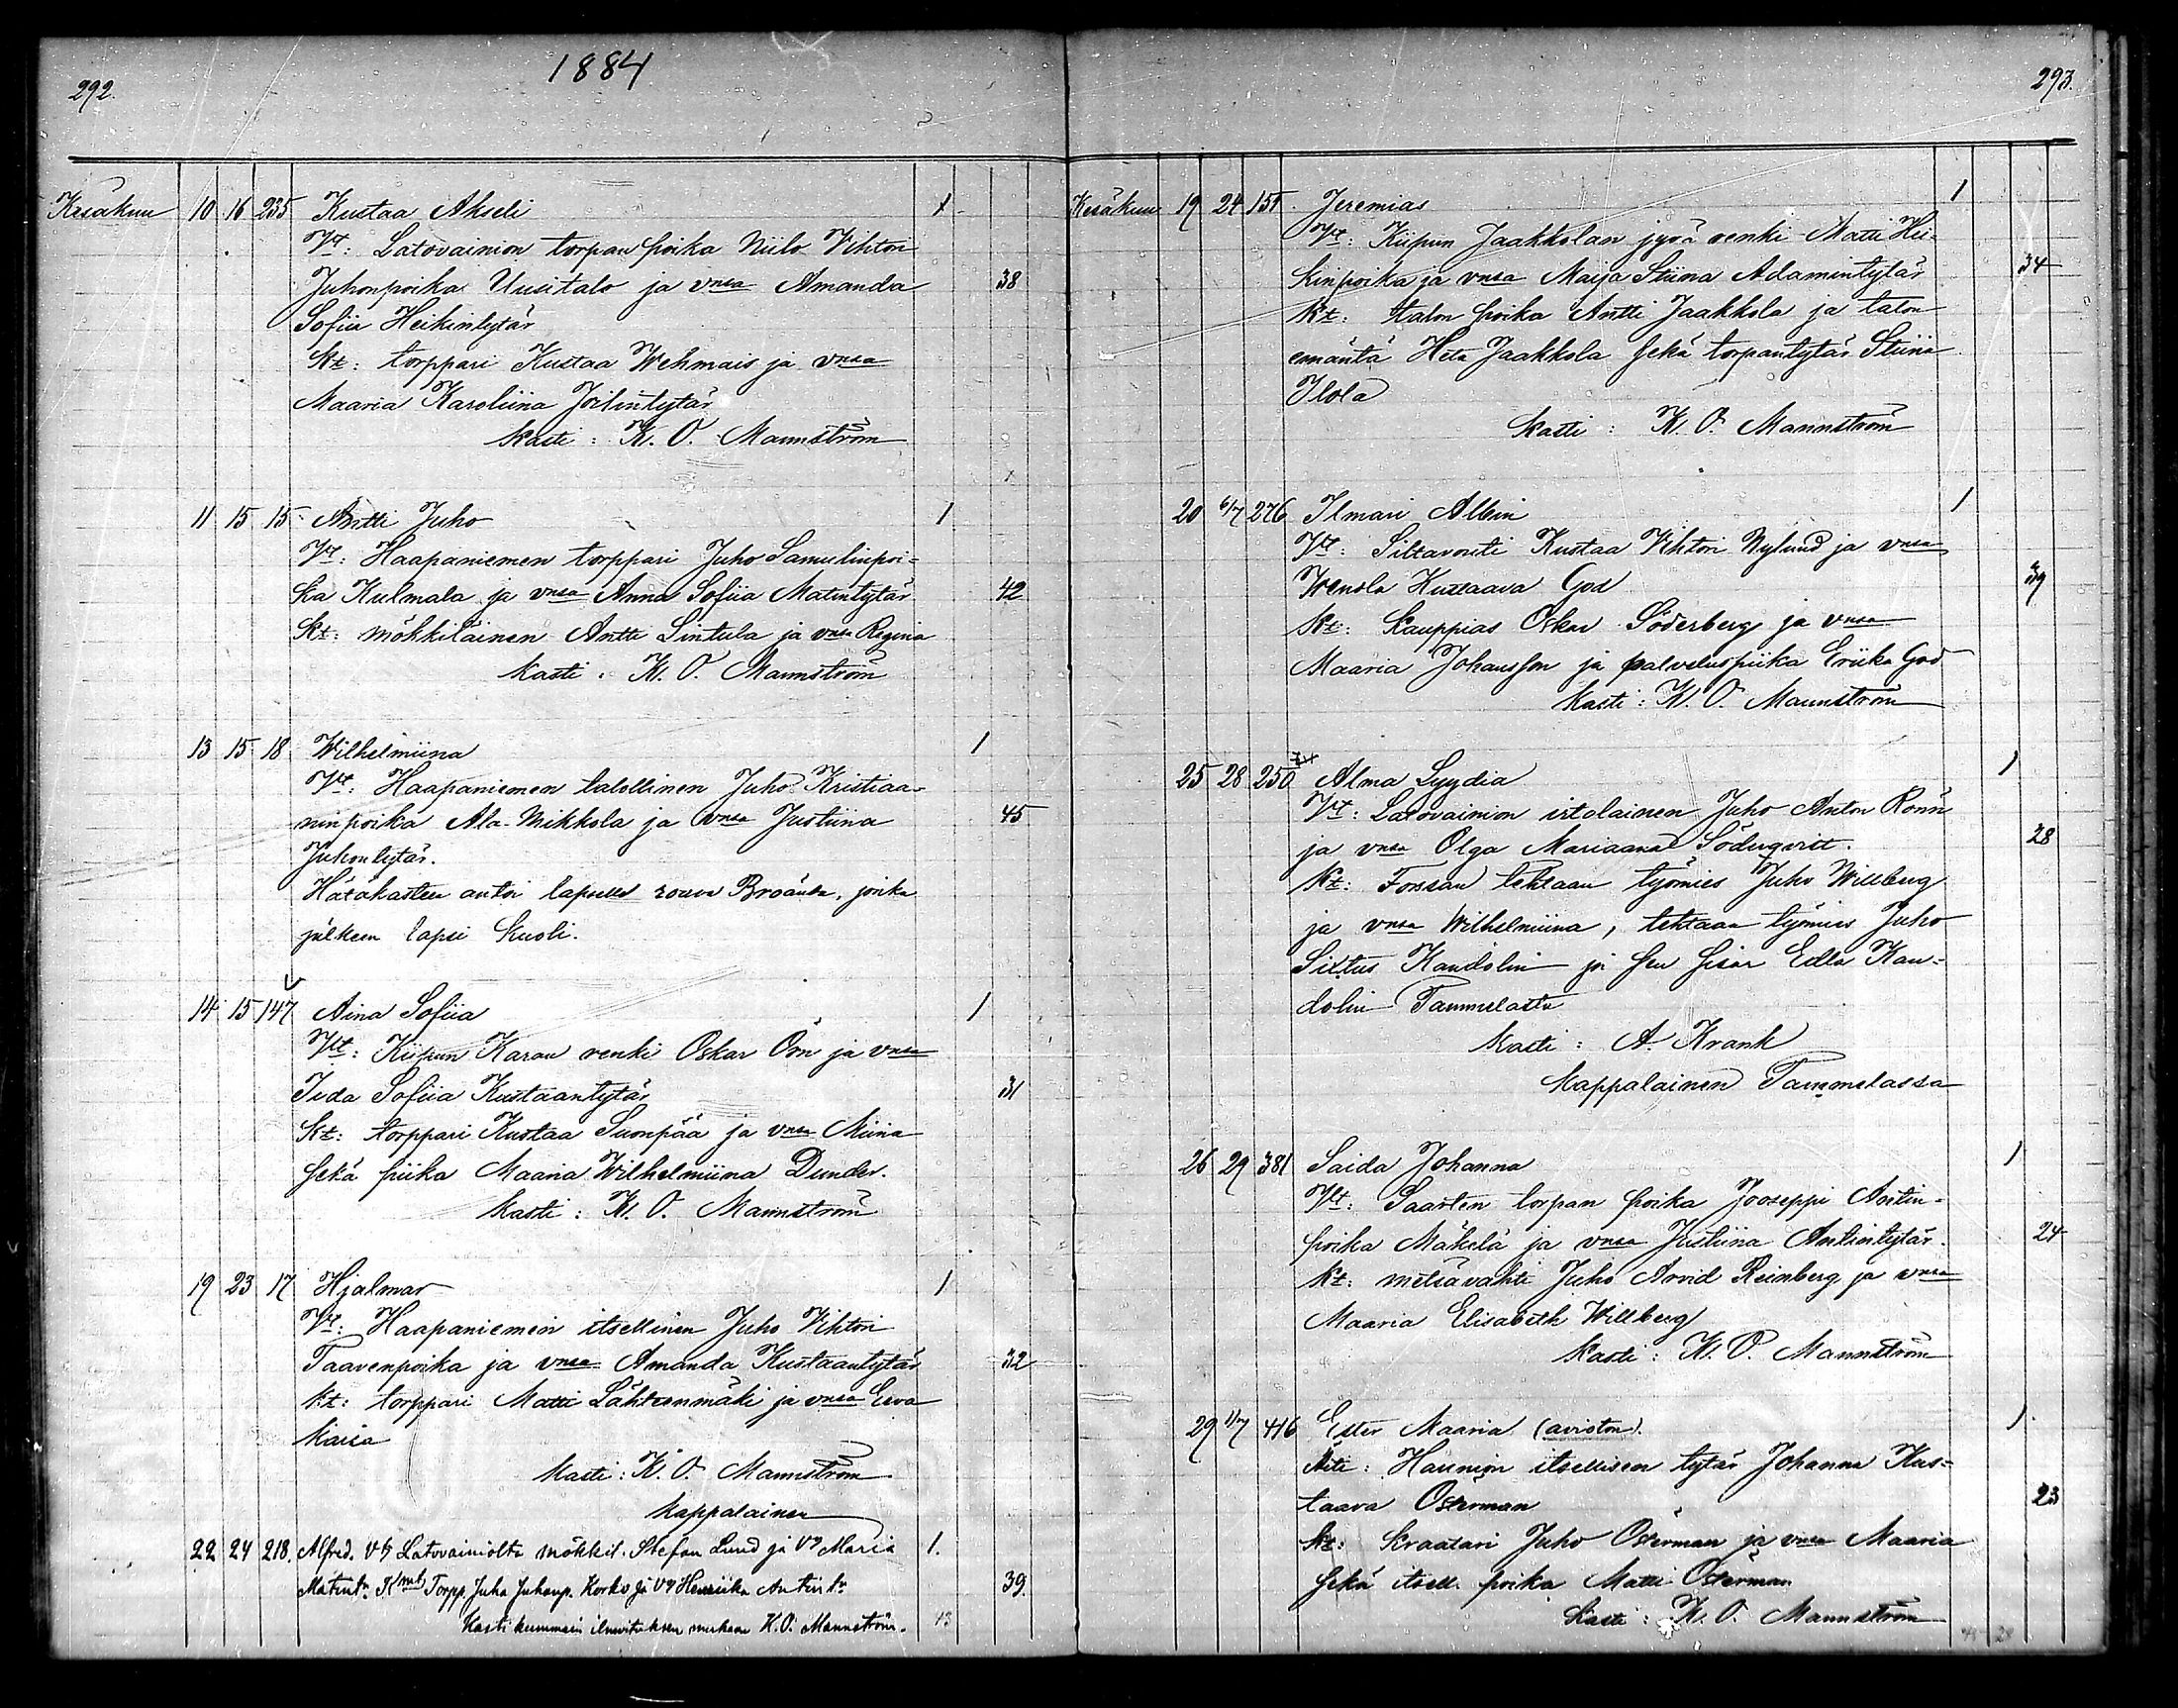 1884
292.
Kesäkuu 10 16 235 Kustaa Akseli 1
Vt: Latovainion torpan poika Niilo Vihtori
Juhonpoika Uusitalo ja vnsa Amanda 38
Sofiia Heikintytär
Kt: torppari Kustaa Wehmais ja vnsa
Maaria Karoliina Joilintytär
Kasti: K. O. Mannström
11 15 15 Antti Juho 1
Vt: Haapaniemen torppari Juho Samulinpoi-
ka Kulmala ja vnsa Anna Sofiia Matintytär 42
Kt: mökkiläinen Antti Lintula ja vnsa Regina
Kasti: K. O. Mannström
13 15 18 Wilhelmiina 1
Vt: Haapaniemen talollinen Juho Kristiaa-
ninpoika Ala-Mikkola ja vnsa Justiina 45
Juhontytär.
Hätäkasteen antoi lapselle rouva, jonka
jälkeen lapsi kuoli.
14 15 147 Aina Sofiia 1
Vt: Kiipun Karan renki Oskar Örn ja vnsa
Iida Sofiia Kustaantytär 31
Kt: torppari Kustaa Suonpää ja vnsa Miina
sekä piika Maaria Wilhelmiina Dunder.
Kasti: K. O. Mannström
19 23 17 Hjalmar 1
Vt: Haapaniemen itsellinen Juho Vihtori
Taavenpoika ja vnsa Amanda Kustaantytär 32
Kt: torppari Matti Lähteenmäki ja vnsa Eeva
Kaisa
Kasti: K. O. Mannström
Kappalainen
22 24 218. Alfred. Vt Latovainiolta mökkil. Stefan Lund ja Vo Maria 1.
Matint. Kmt Torpp. Juha Juhanp. Korko ja Vo Henriika Antint. 39.
Kasti kummein ilmoituksen mukaan K. O. Mannström. 13
293.
Kesäkuu 19 24 151 Jeremias 1
Vt: Kiipun Jaakkolan jyvä renki Matti Hei-
kinpoika ja vnsa Maija Stiina Adamintytär 34
Kt: talon poika Antti Jaakkola ja talon
emäntä Heta Jaakkola sekä torpantytär Stiina
Ilola
Kasti: K. O. Mannström
20 6/7 276 Ilmari Albin 1
Vt: Siltavouti Kustaa Vihtori Nylund ja vnsa
Wendla Kustaava God 39
Kt: Kauppias Oskar Söderberg ja vnsa
Maaria Johansson ja palveluspiika Eriika God
Kasti: K. O. Mannström
25 28 250 Alma Lyydia 1
Vt: Latovainion irtolainen Juho Anton Rönn
ja vnsa Olga Mariaana Söderqvist. 28
Kt: Forssan tehtaan työmies Juho Willberg
ja vnsa Wilhelmiina, tehtaan työmies Juho
Sixtus Kandolin ja sen sisar Edla Kan-
dolin Tammelasta
Kasti: A. Krank
Kappalainen Tammelassa
26 29 381 Saida Johanna 1
Vt: Saarten torpan poika Jooseppi Antin-
poika Mäkelä ja vnsa Justiina Antintytär. 24
Kt: metsävahti Juho Arvid Reinberg ja vnsa
Maaria Elisabeth Willberg
Kasti: K. O. Mannström
29 1/7 416 Ester Maaria (avioton). 1.
Äiti: Haunion itsellisen tytär Johanna Kus-
taava Österman 23
Kt: Kraatari Juho Österman ja vnsa Maaria
sekä itsell. poika Matti Österman
Kasti: K. O. Mannström